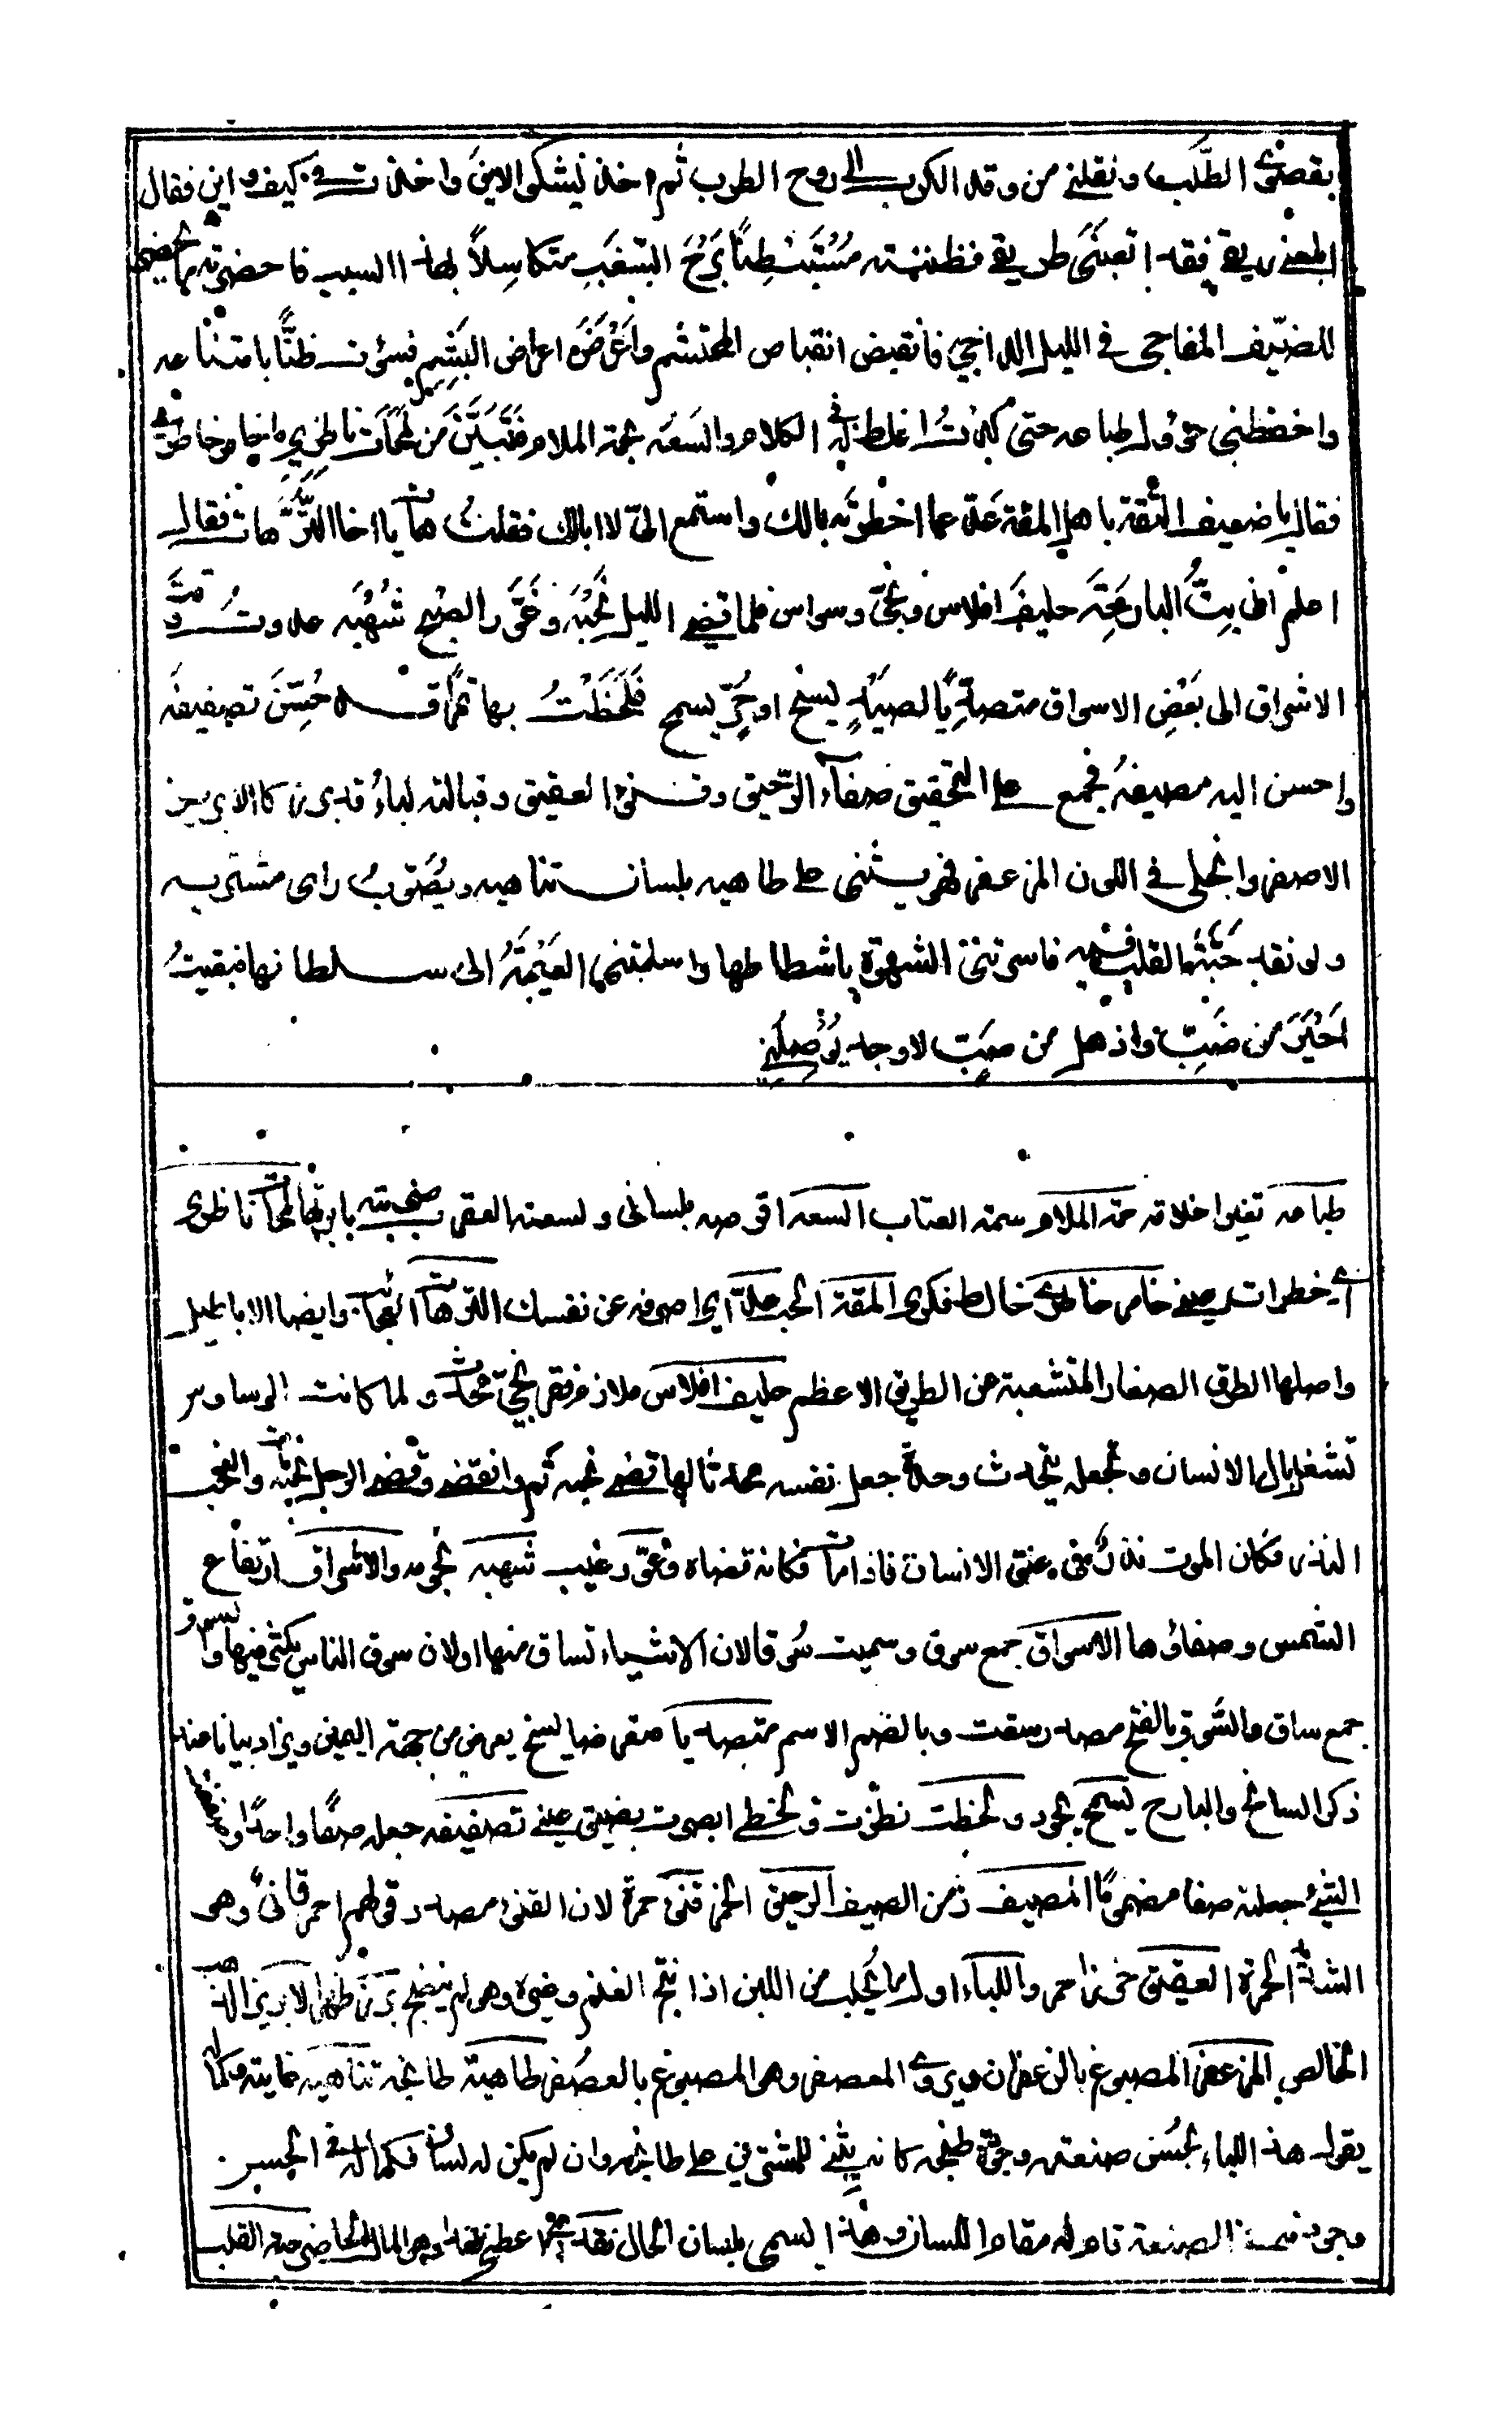 بقصوى الطلب ونقلني من وقد الكرب الى روح الطرب ثم اخذ يشكو الاين واخذت في كيف واين فقال
ابلعني ريقي فقد اتعبني طريقي فظننته مُسْتَبْطِنًا لِلسَّغَبِ متكاسلاً لهذا السبب فاحضرته ما يحضر
للضيف المفاجي في الليل الداجي فانقبض انقباض المحتشم واعرض اعراض البشم فسؤت ظنًّا بامتناعه
واحفظني حؤول طباعه حتى كدت اغلظ له في الكلام والسعه بحمة الملام فتبين من لمحات ناظري ما خامر خاطري
فقال يا ضعيف الثقة باهل المقة عدّ عما اخطرته بالك واستمع اليّ لا ابا لك فقلت هات يا اخا الترّهات فقال
اعلم اني بتُّ البارحة حليف افلاس ونجيّ وسواس فلما قضى الليل نحبه وغوّر الصبح شهبه غدوت وقت
الاشراق الى بعض الاسواق متصديًا لصيدٍ يسنح او حرّ يسمح فلحظت بها تمرًا قد حُسّن تصفيفه
واحسن اليه مصيفه فجمع على التحقيق صفاء الرحيق وقنوء العقيق وقبالته لباء قد برز كالابريز
الاصفر وانجلى في اللون المزعفر فهو يثني على طاهيه بلسان تناهيه ويصوب راى مشتريه
ولو نقد حبة القلب فيه فاسرتني الشهوة باشطانها واسلمتني العيمة الى سلطانها فبقيت
احير من ضبّ واذهل من صبّ لا وجد يوصلني
طباعه تغير اخلاقه حمة الملام سمة العتاب السعه اقرصه بلساني ولسعته العقرب ضربته بابرتها لمحات ناظري
اي خطرات بصري خامر خاطري خالط فكري المقة الحب عدّ اي اصرفه عن نفسك الترهات العجائب وايضا الاباطيل
واصلها الطرق الصغار المتشعبة عن الطريق الاعظم حليف افلاس ملازم فقر نجيّ محدث ولما كانت الوساوس
تشغل بال الانسان وتجعله يتحدث وحده جعل نفسه محدثا لها قضى نحبه تم وانقضى وقضى الرجل نحبه مات والنحب
النذر فكان الموت نذر في عنق الانسان فاذا مات فكانه قضاه وغوّر غيب شهبه نجومه والاشراق ارتفاع
الشمس وصفاؤها الاسواق جمع سوق وسميت سوقا لان الاشياء تساق منها اولان سوق الناس يكثر فيها والسوق
جمع ساق والسوق بالفتح مصدر سقت وبالضم الاسم متصديا متعرضا يسنح يعرض من جهة اليمين ويزاد بيانا عند
ذكر السانح والبارح يسمح يجود ولحظت نظرت ولحظي ابصرت بضيق عيني تصفيفه جعله صفًّا واحدًا
الشيء جعلته صفا مضمومًا المصيف زمن الصيف الرحيق الخمر قنوء حمرة لان القنوء مصدر قولهم احمر قانئ وهو
الشديد الحمرة العقيق خرز احمر واللباء اول ما يحلب من اللبن اذا نتج الغنم وغيره وهو لم ينضج برز ظهر الابريز الذهب
الخالص المزعفر المصبوغ بالزعفران ويروى المعصفر وهو المصبوغ بالعصفر طاهيه طابخه تناهيه غايته وكماله
يقول هذا اللباء لحسن صنعته وجودة طبخه كانه يثني للمشترين على طابخه وان لم يكن له لسان فكماله في الحسن
وجودة الصنعة قام له مقام اللسان وهذا يسمى بلسان الحال نقد اعطى نقدا وهو المال الحاضر حبة القلب